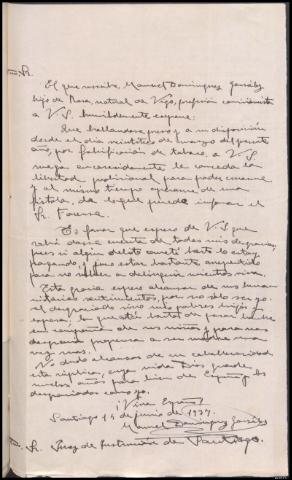 Sr.
El que suscribe, Manuel Dominguez González
hijo de Rosa, natural de Vigo, profesión comisionista
a V.S. humildemente expone:
Que hallandose preso y a su disposición
desde el día veintitres de marzo del presente
año, por falsificación de tabaco, a V.S.
ruega encarecidamente le conceda la
libertad provisional para poder
y al mismo tiempo de una
de lo que puede informar el
Sr.
Es favor que espero de V.S. que
sabrá darse cuenta de todas mis desgracias,
pues si algún delito cometí harto lo estoy
pagando, y pues estoy bastante arrepentido
para no volver a delinquir mientras viva.
Esta gracia espero alcanzar de sus huma-
nitarios sentimientos, por no sólo ser yo
el desgraciado sino mis pobres hijos y
esposa, los que están hartos de pasar hambre
en compañía de sus niños y para más
desgracia
No dudo alcanzar de su caballerosidad
esta súplica, cuya vida Dios guarde
muchos años para bien de España y los
desgraciados como yo.
¡Viva España!
Santiago 14 de junio de 1937.
Manuel Dominguez González
Sr. Juez de Instrucción de Santiago.